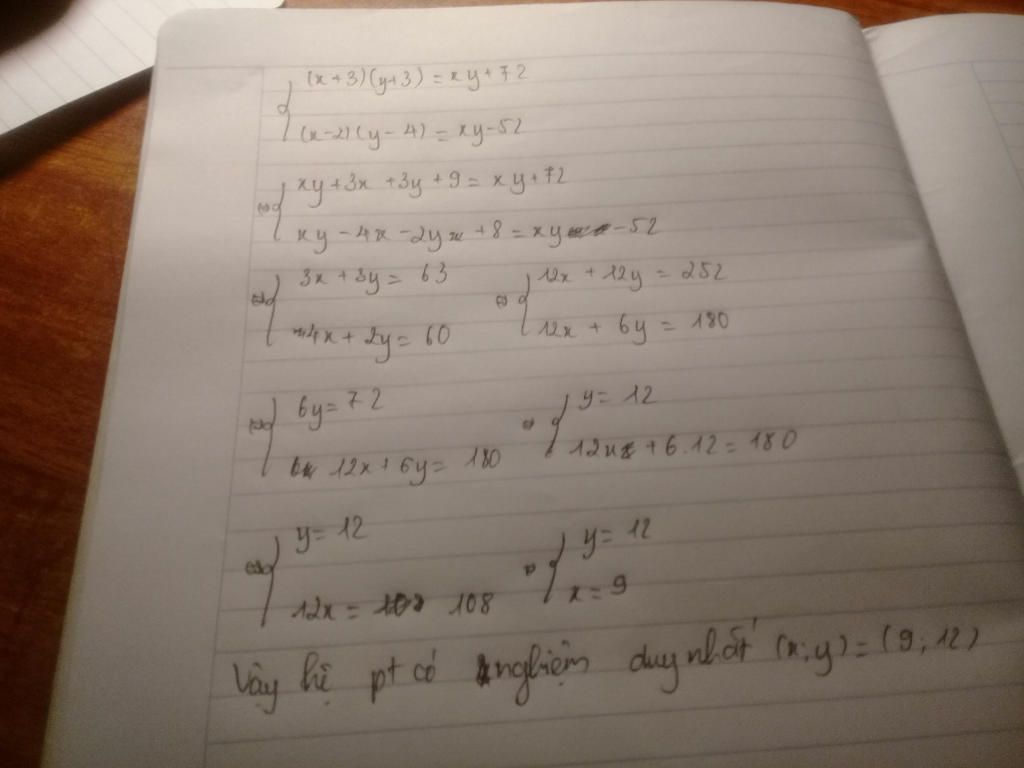 (x+3)(y+3) = xy+72
(x-2)(y-4) = xy-52
⇔ xy+3x+3y+9 = xy+72
xy-4x-2y+8 = xy-52
⇔ 3x+3y = 63 ⇔ 12x+12y = 252
4x+2y = 60 12x+6y = 180
⇔ 6y = 72 ⇔ y = 12
12x+6y = 180 12x+6.12 = 180
⇔ y = 12 ⇔ y = 12
12x = 108 x = 9
Vậy hệ pt có nghiệm duy nhất (x;y) = (9;12)